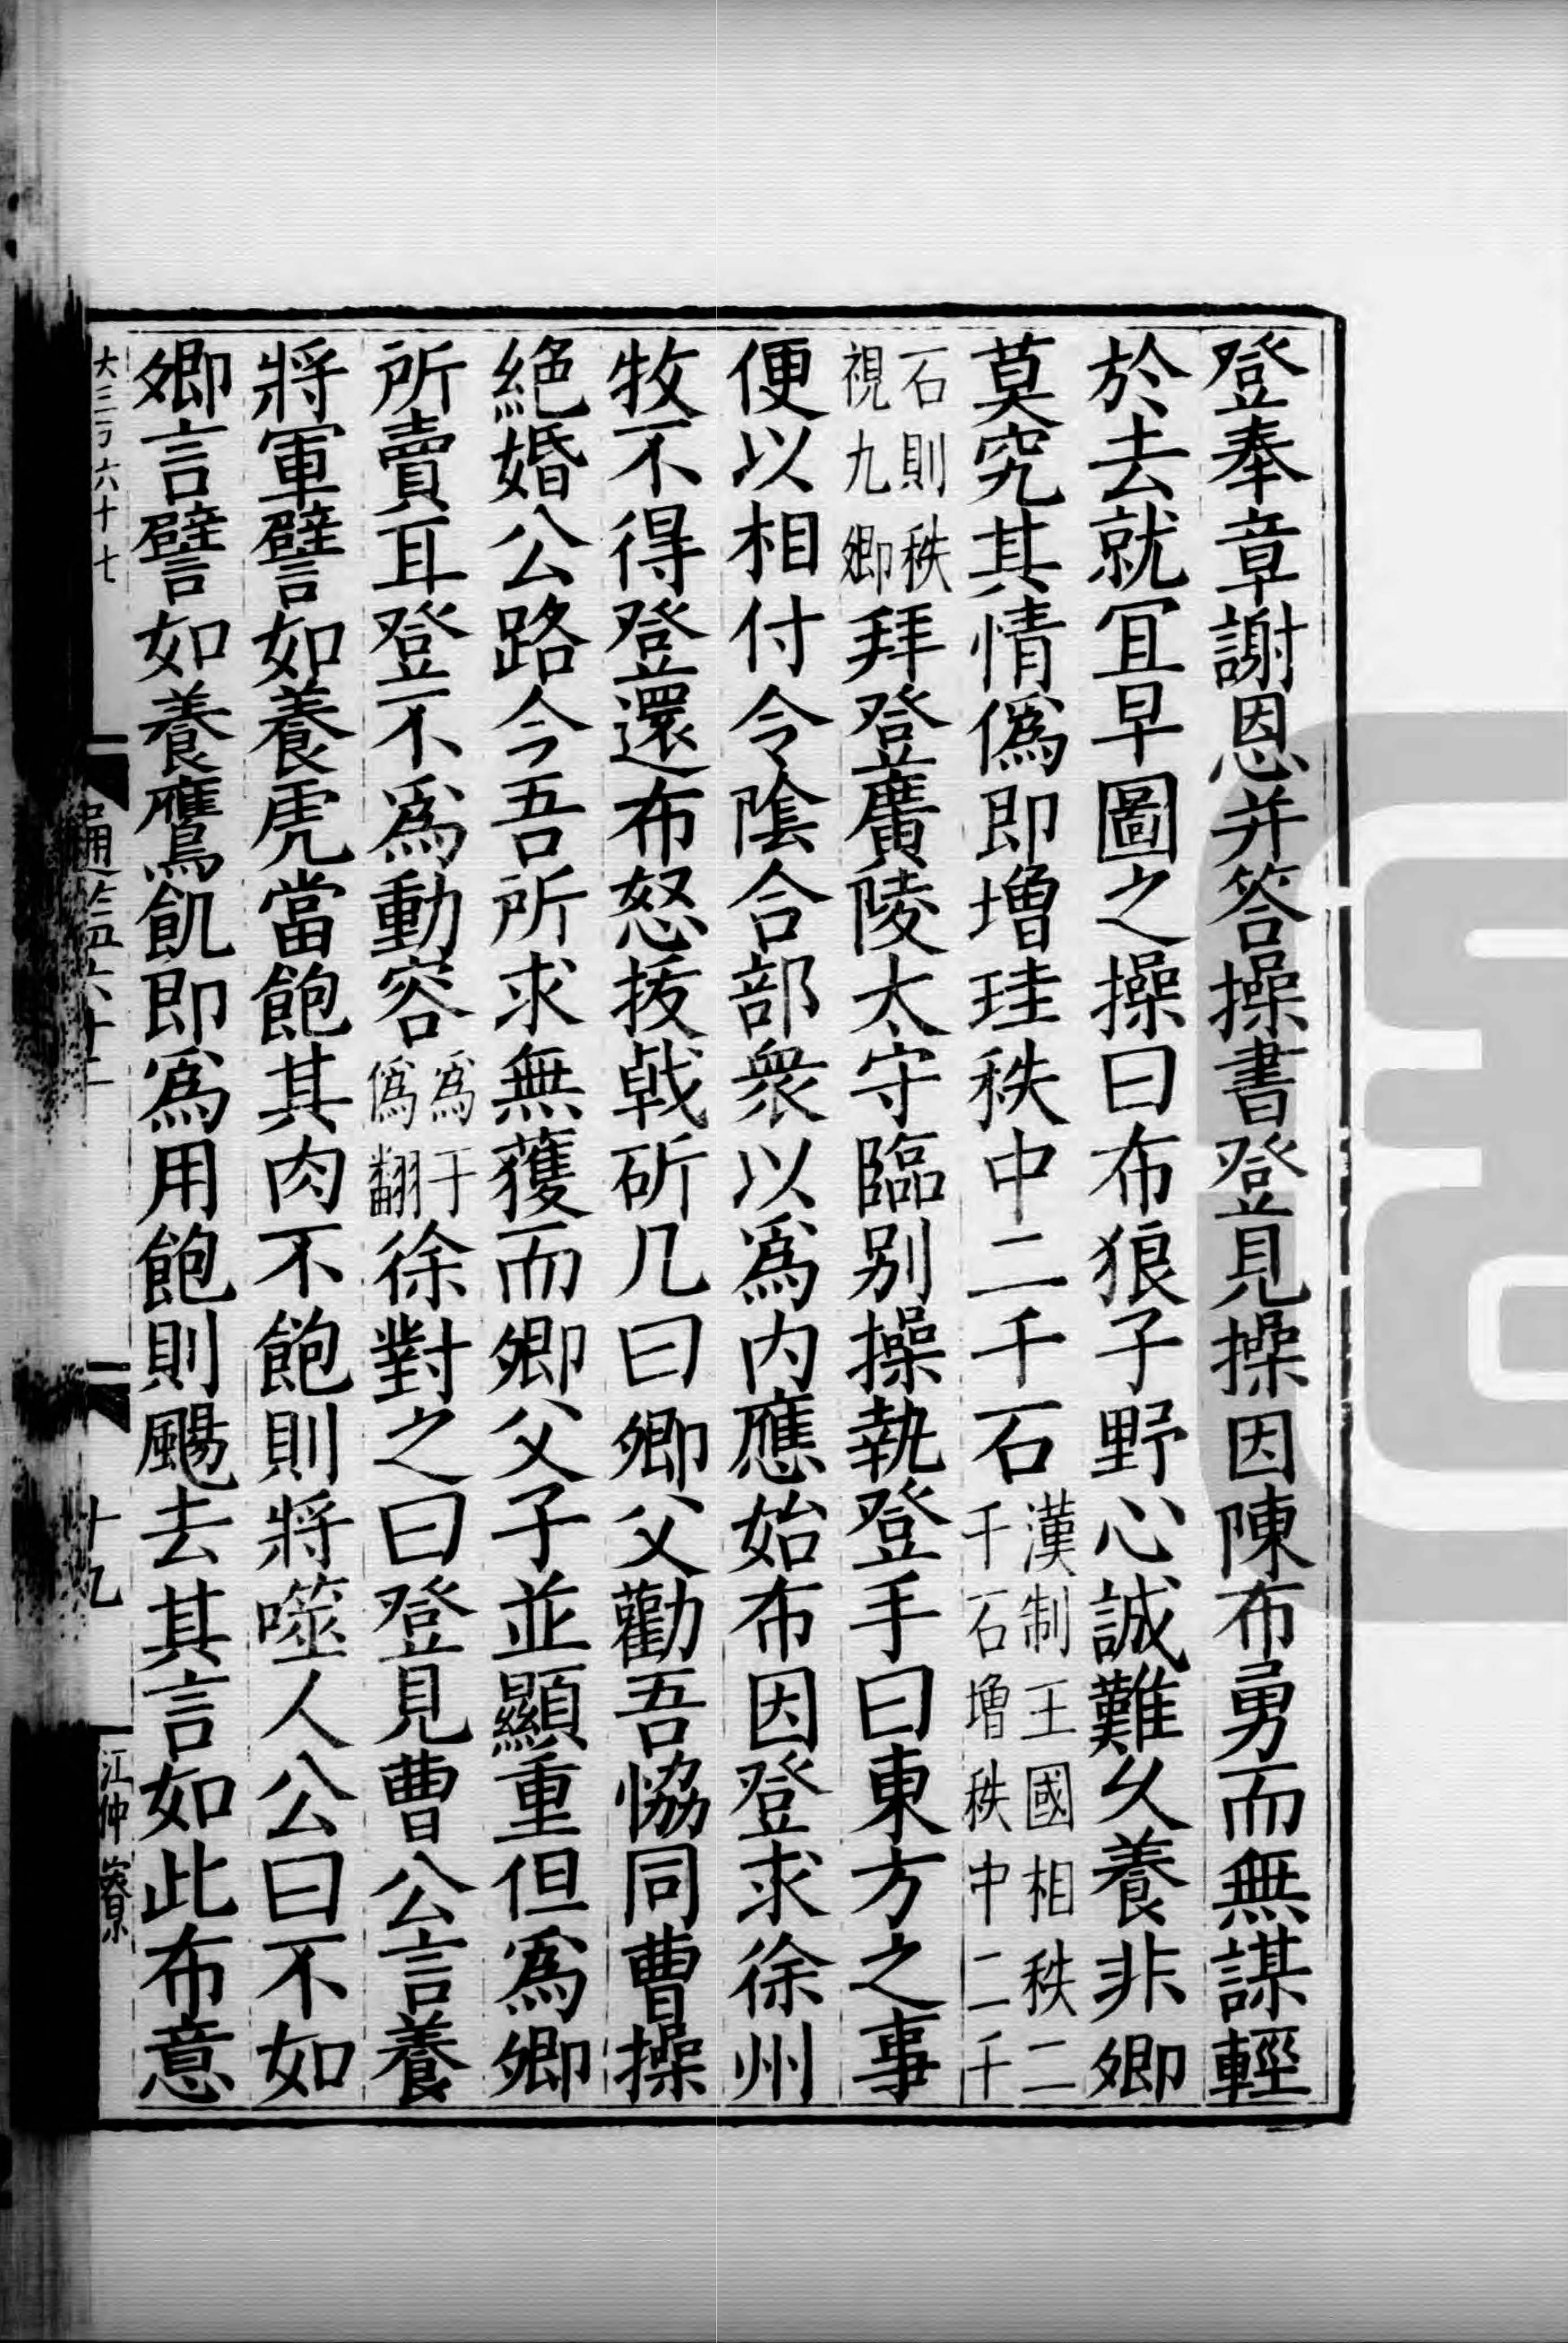 登奉章謝恩并答操書登見操因陳布勇而無謀輕
於去就冝早圖之操曰布狼子野心誠難乆養非卿
莫究其情僞即增珪秩中二千石漢制王國相秩二千石增秩中二千
石則秩視九卿拜登廣陵太守臨别操執登手曰東方之事
便以相付令陰合部衆以爲内應始布因登求徐州
牧不得登還布怒拔戟斫几曰卿父勸吾恊同曹操
絶婚公路今吾所求無獲而卿父子並顯重但爲卿
所賣耳登不爲動容爲于僞翻徐對之曰登見曹公言養
將軍譬如養虎當飽其肉不飽則將噬人公曰不如
卿言譬如養鷹飢即爲用飽則颺去其言如此布意
大三丂六十七
通監六十二
十九
江仲 寮